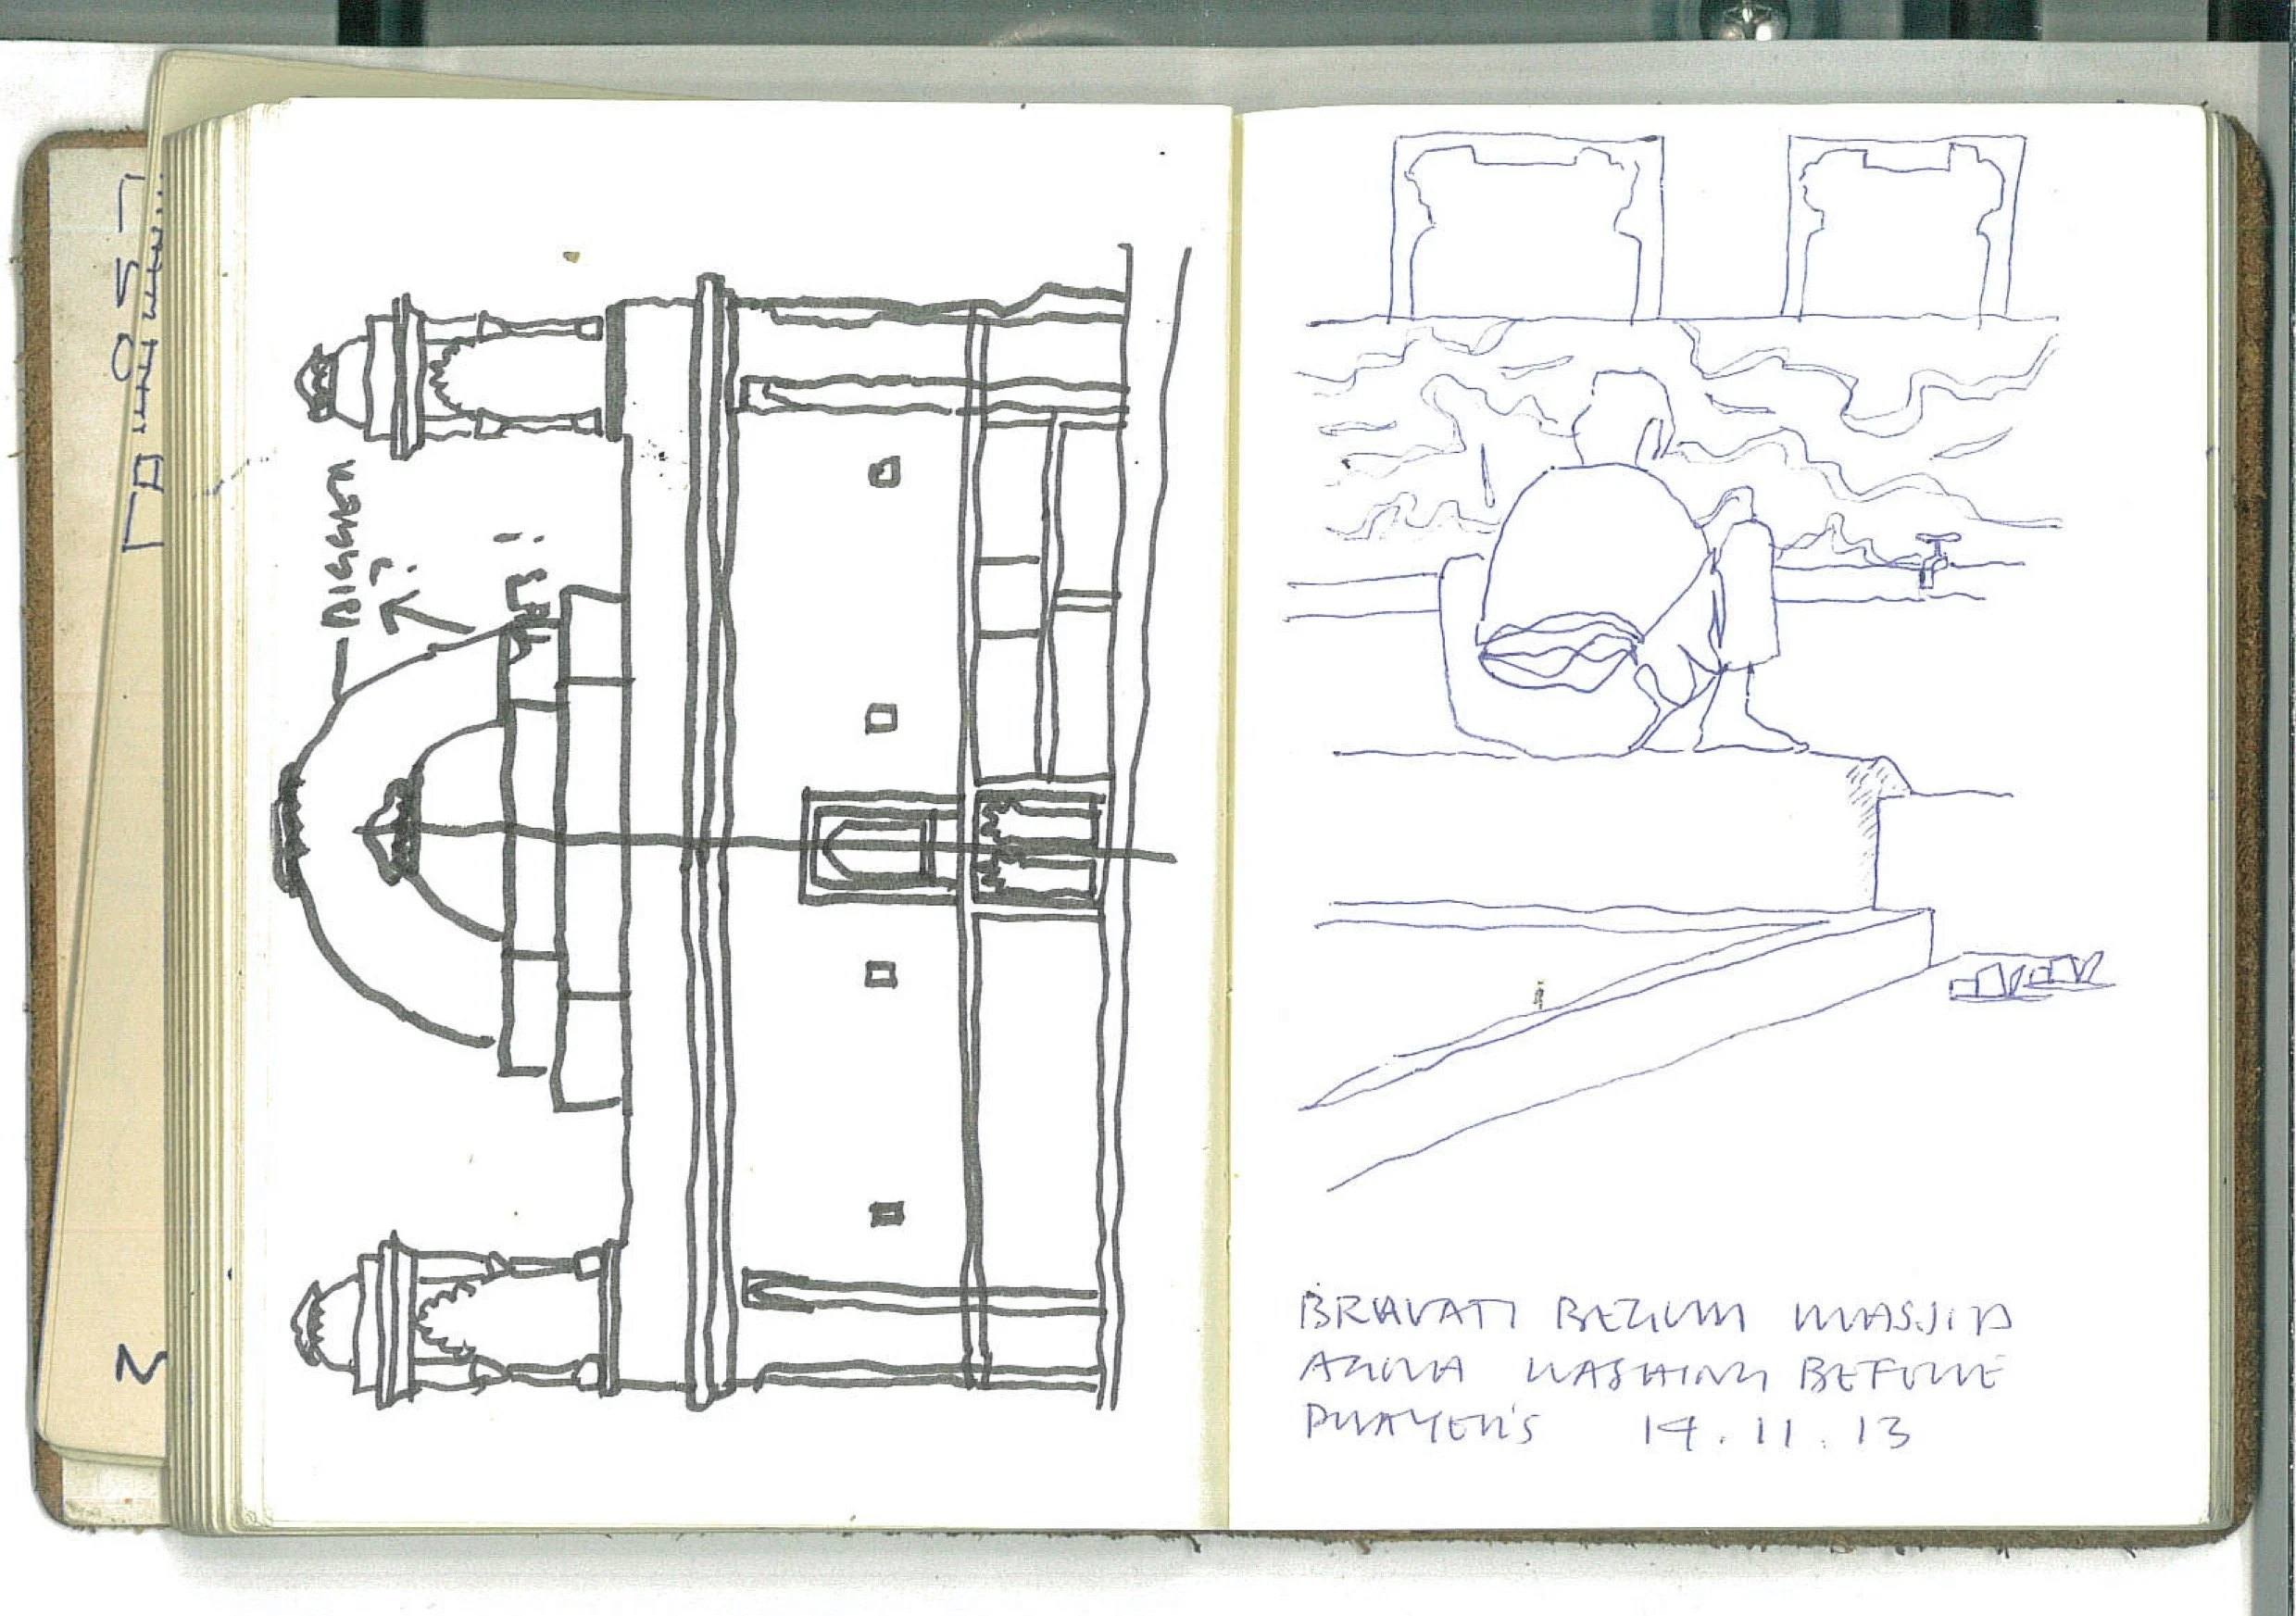 BIGGER
BRAVATI BEZUM MASJID
AGRA WASHING BEFORE
PRAYERS 14.11.13